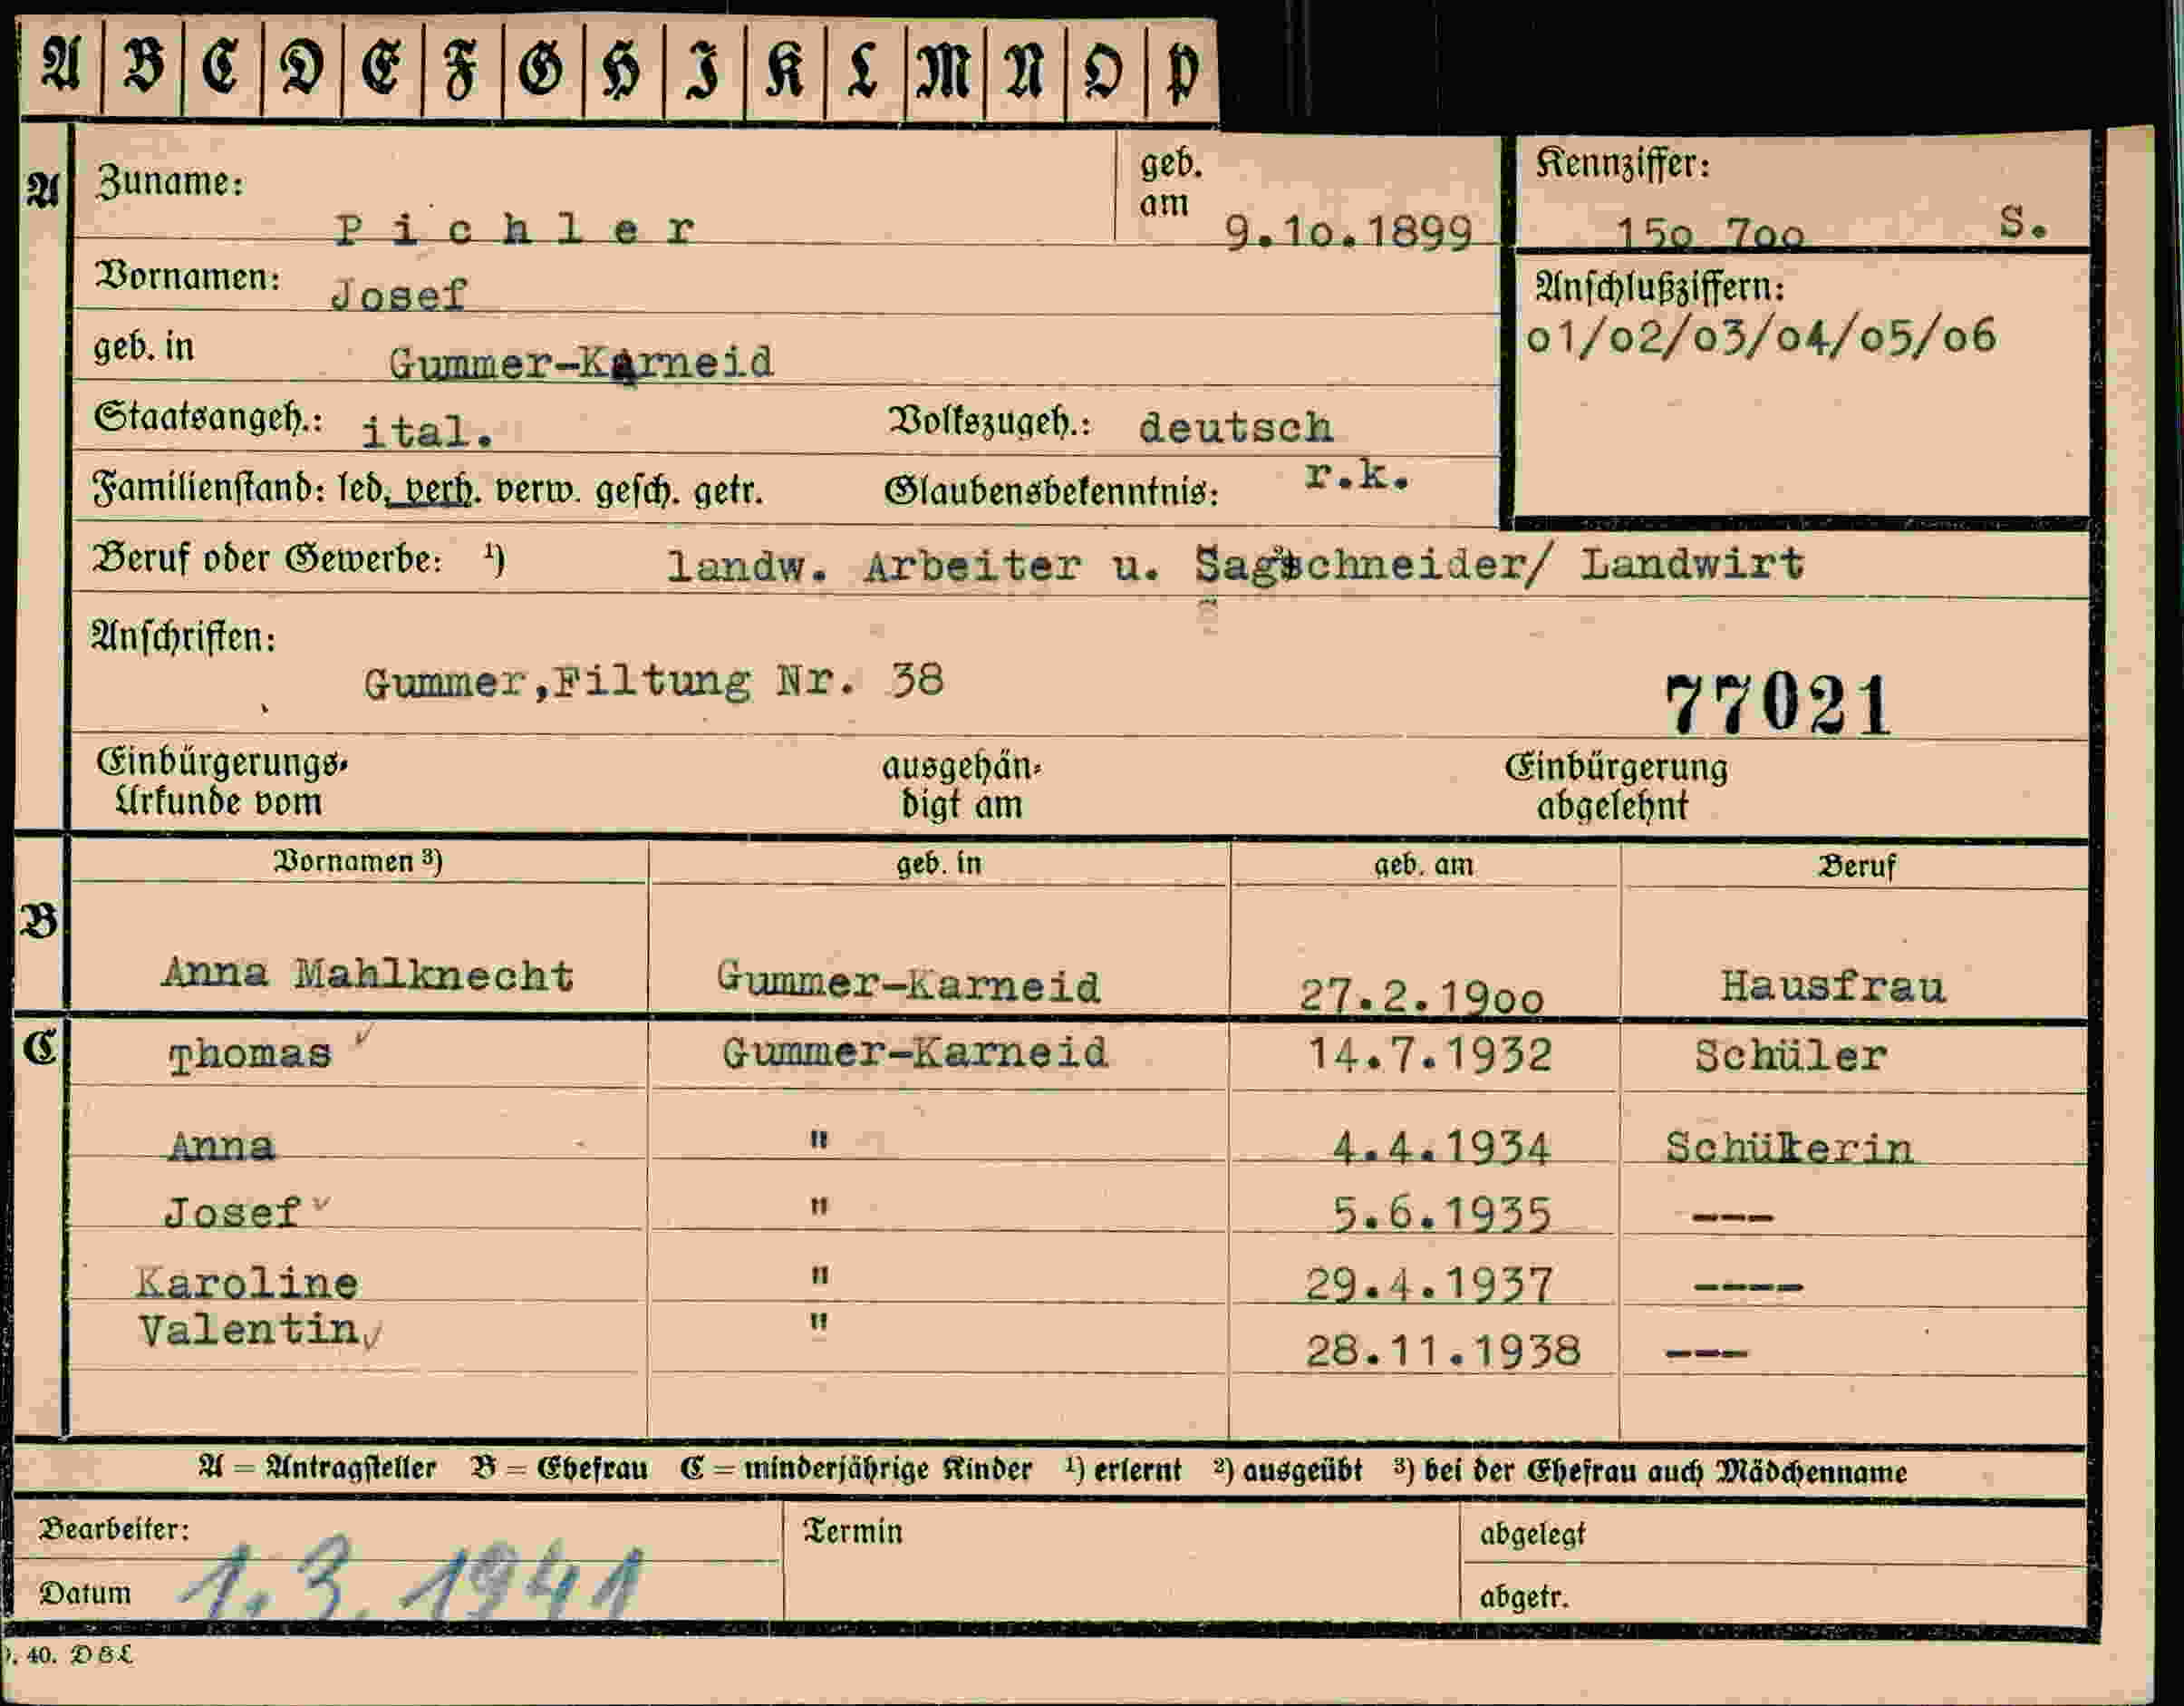 A B C D E F G H I K L M N O P
A
Zuname: Pichler
geb. am 9.10.1899
Kennziffer: 150 700 S.
Vornamen: Josef
Anschlußziffern:
01/02/03/04/05/06
geb. in Gummer-Karneid
Staatsangeh.: ital. Volkszugeh.: deutsch
Familienstand: led. verh. verw. gesch. getr. Glaubensbekenntnis: r.k.
Beruf oder Gewerbe: ¹) landw. Arbeiter u. Sagschneider/ Landwirt
Anschriften:
Gummer,Filtung Nr. 38
77021
Einbürgerungs- ausgehän- Einbürgerung
Urkunde vom digt am abgelehnt
Vornamen ³) geb. in geb. am Beruf
B
Anna Mahlknecht Gummer-Karneid 27.2.1900 Hausfrau
C
Thomas Gummer-Karneid 14.7.1932 Schüler
Anna " 4.4.1934 Schülerin
Josef " 5.6.1935 ---
Karoline " 29.4.1937 ----
Valentin " 28.11.1938 ---
A = Antragsteller B = Ehefrau C = minderjährige Kinder ¹) erlernt ²) ausgeübt ³) bei der Ehefrau auch Mädchenname
Bearbeiter: Termin abgelegt
Datum 1.3.1941 abgetr.
40. DBL